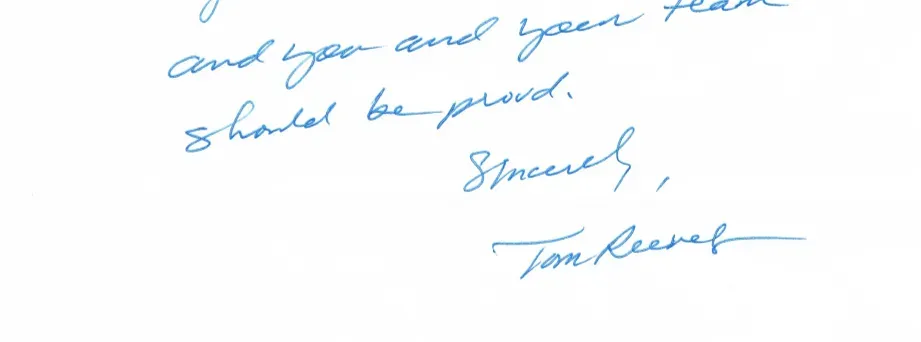 and you and your team
should be proud.
Sincerely,
Tom Reeves